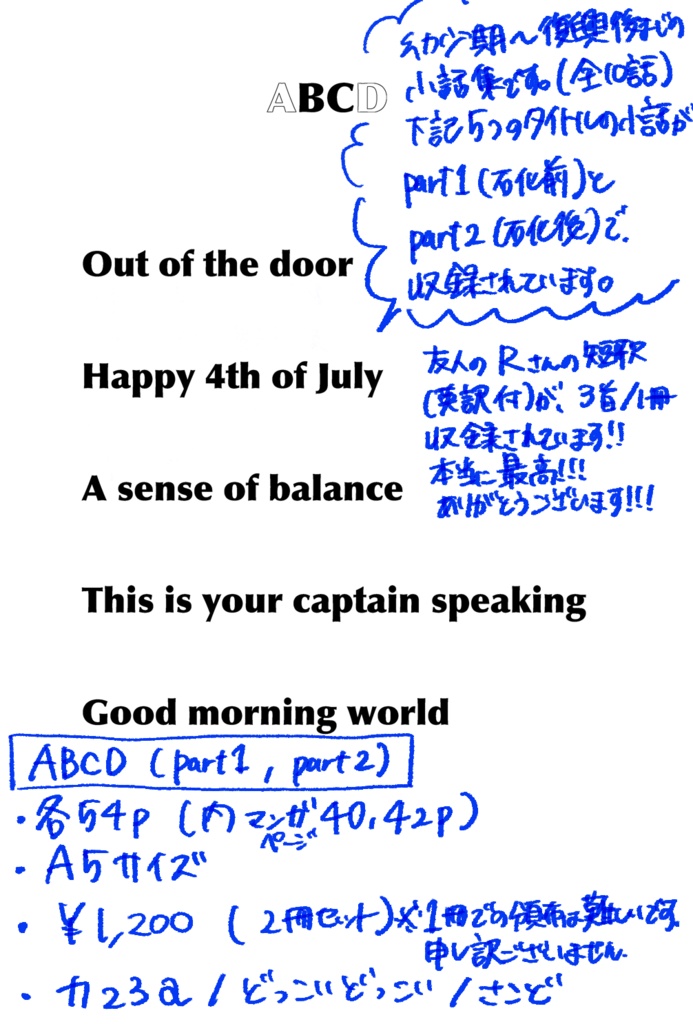 ABCD
幼少期〜復興後までの
小話集です。(全10話)
下記5つのタイトルの小話が
part1(石化前)と
part2(石化後)で
収録されています。
Out of the door
Happy 4th of July
A sense of balance
This is your captain speaking
Good morning world
友人のRさんの短歌
(英訳付)が、3首/1冊
収録されています!!
本当に最高!!!
ありがとうございます!!!
ABCD (part1, part2)
・各54p (内マンガページ40,42p)
・A5サイズ
・¥1,200 (2冊セット)※1冊での頒布は難しいです。
申し訳ございません。
・カ23a/どっこいどっこい/さんど